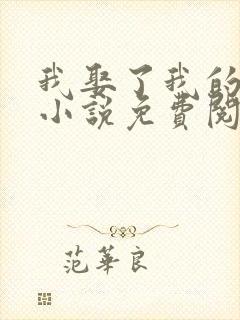 我娶了我的
小说免費閱
范華良